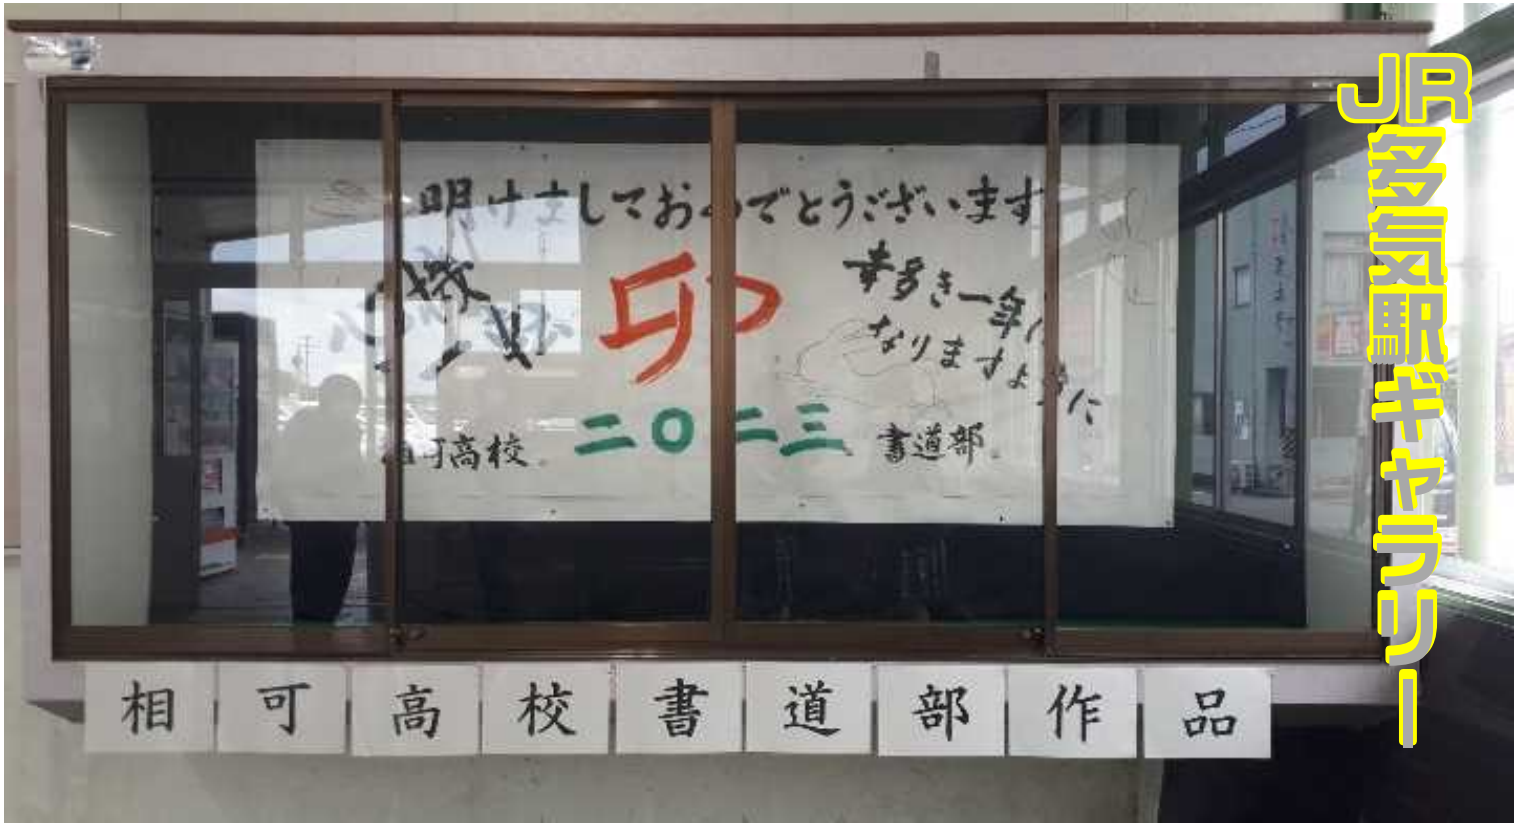 JR多気駅ギャラリー
明けましておめでとうございます
卯
幸多き一年に
なりますように
相可高校
二〇二三
書道部
相可高校書道部作品